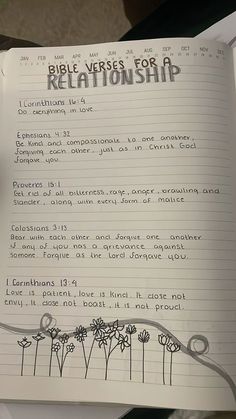 JAN FEB MAR APR MAY JUN JUL AUG SEP OCT NOV DEC
BIBLE VERSES FOR A
RELATIONSHIP
1 Corinthians 16:4
Do everything in love.
Ephesians 4:32
Be Kind and compassionate to one another,
forgiving each other, just as in Christ God
forgave you.
Proverbs 15:1
Get rid of all bitterness, rage, anger, brawling and
Slander, along with every form of malice
Colossians 3:13
Bear with each other and forgive one another
if any of you has a grievance against
someone. Forgive as the Lord forgave you.
1 Corinthians 13:4
Love is patient, love is Kind. It close not
envy, It close not boast, it is not proud.